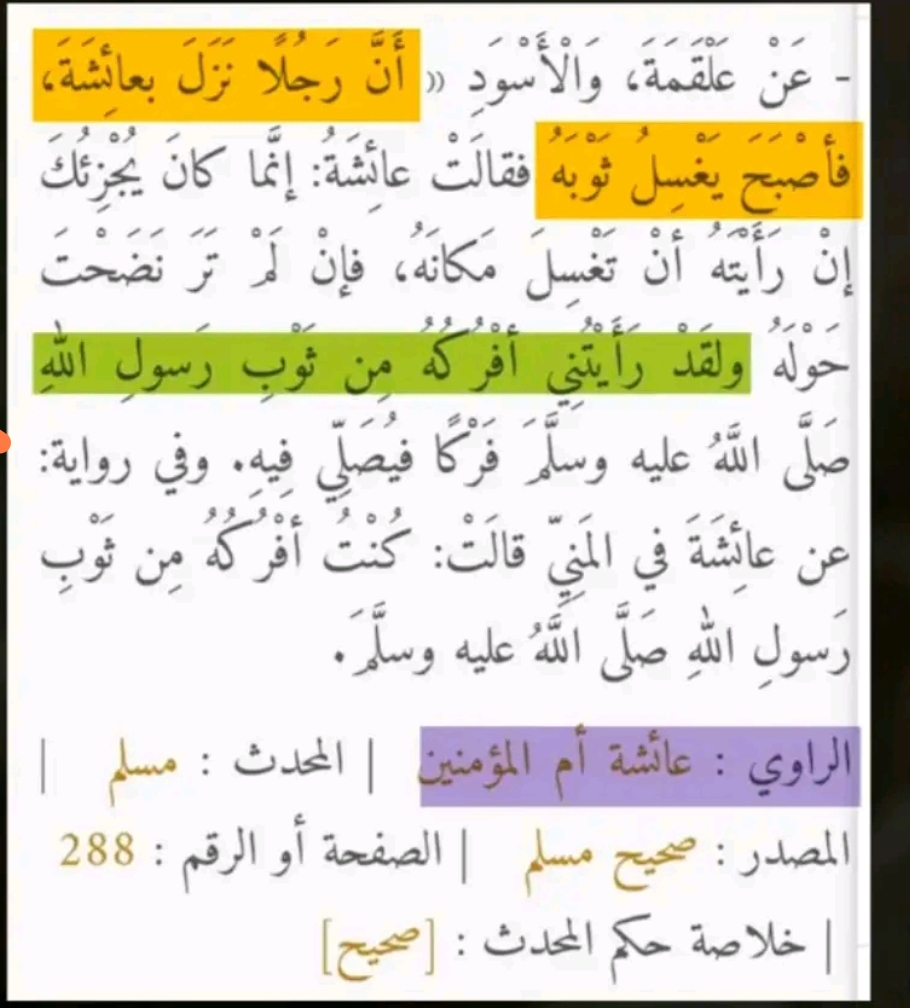 - عَنْ عَلْقَمَةَ، وَالْأَسْوَدِ «أنَّ رَجُلًا نَزَلَ بعائِشَةَ،
فأصْبَحَ يَغْسِلُ ثَوْبَهُ فقالَتْ عائِشَةُ: إنَّما كانَ يُجْزِئُكَ
إنْ رَأَيْتَهُ أنْ تَغْسِلَ مَكانَهُ، فإنْ لَمْ تَرَ نَضَحْتَ
حَوْلَهُ ولقَدْ رَأَيْتُنِي أفْرُكُهُ مِن ثَوْبِ رَسولِ اللهِ
صَلَّى اللَّهُ عليه وسلَّمَ فَرْكًا فيُصَلِّي فِيهِ. وفي رواية:
عن عائِشَةَ في المَنِيِّ قالَتْ: كُنْتُ أفْرُكُهُ مِن ثَوْبِ
رَسولِ اللهِ صَلَّى اللَّهُ عليه وسلَّمَ.
الراوي : عائشة أم المؤمنين | المحدث : مسلم |
المصدر : صحيح مسلم | الصفحة أو الرقم : 288
| خلاصة حكم المحدث : [صحيح]